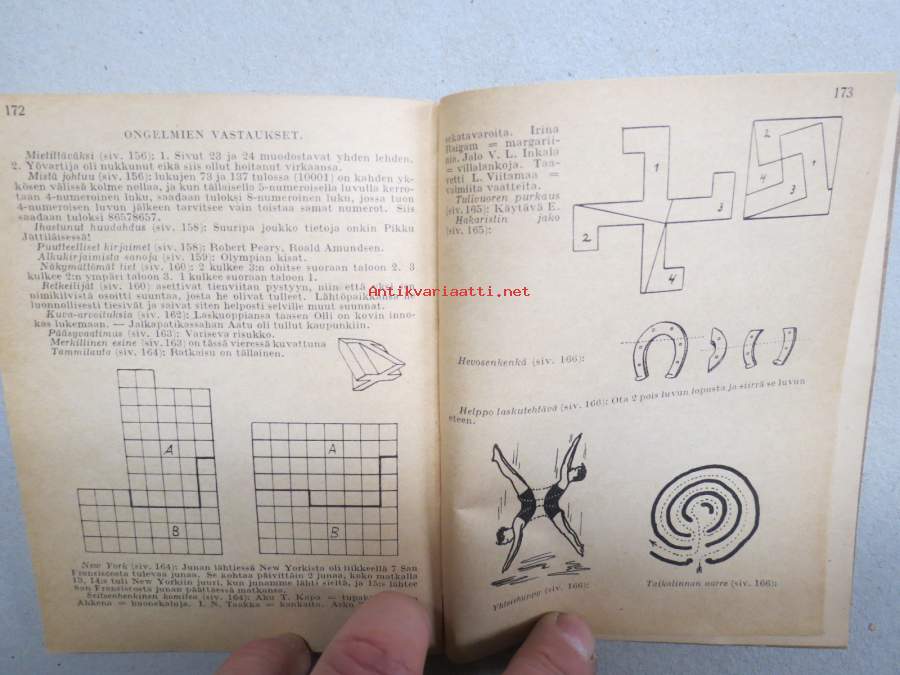 172
ONGELMIEN VASTAUKSET.
Mietittäväksi (siv. 156): 1. Sivut 23 ja 24 muodostavat yhden lehden.
2. Yövartija oli nukkunut eikä siis ollut hoitanut virkaansa.
Mistä johtuu (siv. 156): lukujen 73 ja 137 tulossa (10001) on kahden yk-
kösen välissä kolme nollaa, ja kun tällaisella 5-numeroisella luvulla kerro-
taan 4-numeroinen luku, saadaan tuloksi 8-numeroinen luku, jossa tuon
4-numeroisen luvun jälkeen tarvitsee vain toistaa samat numerot. Siis
saadaan tuloksi 86578657.
Ihastunut huudahdus (siv. 158): Suuripa joukko tietoja onkin Pikku
Jättiläisessä!
Puutteelliset kirjaimet (siv. 158): Robert Peary, Roald Amundsen.
Alkukirjaimista sanoja (siv. 159): Olympian kisat.
Näkymättömät tiet (siv. 160): 2 kulkee 3:n ohitse suoraan taloon 2. 3
kulkee 2:n ympäri taloon 3. 1 kulkee suoraan taloon 1.
Retkeilijät (siv. 160) asettivat tienviitan pystyyn, niin että
nimikilvistä osoitti suuntaa, josta he olivat tulleet. Lähtöpaikkansa he
luonnollisesti tiesivät ja saivat siten helposti selville muut suunnat.
Kuva-arvoituksia (siv. 162): Laskuoppiansa taasen Olli on kovin inno-
kas lukemaan. — Jalkapatikassahan Astu oli tullut kaupunkiin.
Pääsyvaatimus (siv. 163): Variseva risukko.
Merkillinen esine (siv. 163) on tässä vieressä kuvattuna
Tammilauta (siv. 164): Ratkaisu on tällainen.
A
B
A
B
New York (siv. 164): Junan lähtiessä New Yorkista oli liikkeellä 7 San
Fransiscosta tulevaa junaa. Se kohtaa päivittäin 2 junaa, koko matkalla
13, 14:s tuli New Yorkiin juuri, kun junamme lähti sieltä, ja 15:s lähtee
San Fransiscosta junan päättäessä matkansa.
Seitsenhenkinen komitea (siv. 164): Aku T. Kapo =
Akkena = huonekaluja. I. N. Taakka = kankaita. Asko
173
sekatavaroita. Irina
Raigam = margarii-
nia. Jalo V. L. Inkala
= villalankoja. Taa-
vetti L. Viitamaa =
valmiita vaatteita.
Tulivuoren purkaus
(siv. 165): Käytävä E.
Hakaristin jako
(siv. 165):
1
2
3
4
2
1
4
3
Antikvariaatti.net
Hevosenkenkä (siv. 166):
Helppo laskutehtävä (siv. 166): Ota 2 pois luvun lopusta ja siirrä se luvun
eteen.
Yhteishyppy (siv. 166):
Taikalinnan aarre (siv. 166):